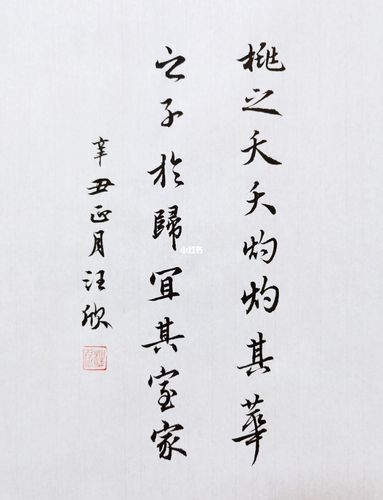 桃之夭夭灼灼其華
之子於歸宜其室家
辛丑正月汪欣
小红书